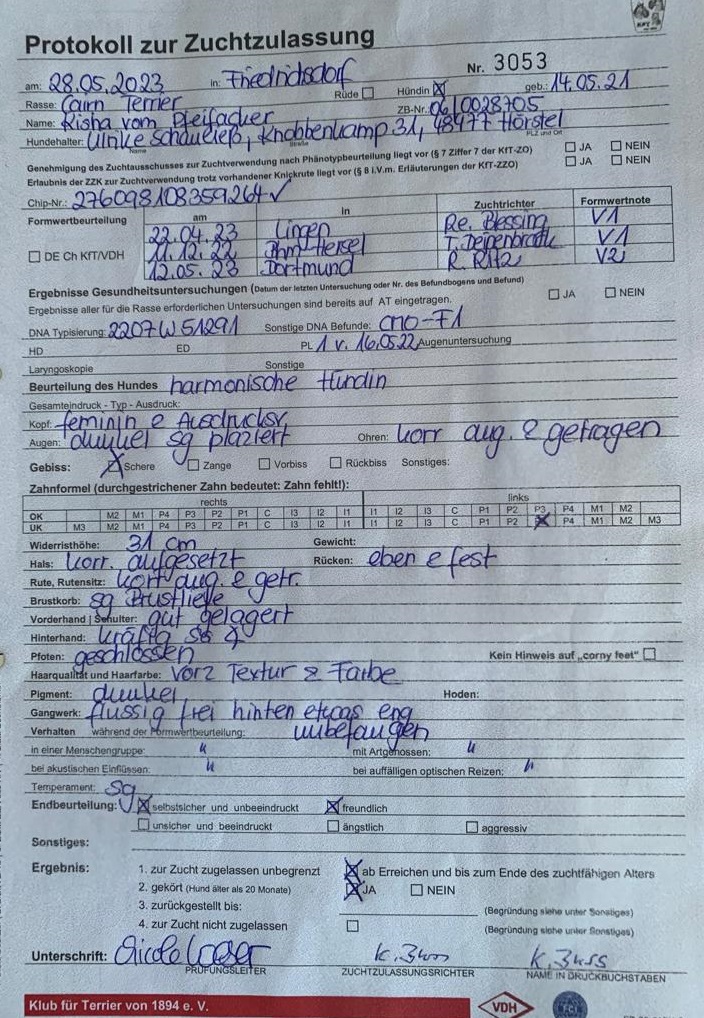 Protokoll zur Zuchtzulassung
Nr. 3053
am: 28.05.2023 in: Friedrichsdorf Rüde Hündin geb.: 14.05.21
Rasse: Cairn Terrier ZB-Nr. 06/0028705
Name: Risha vom Pfeifacker
Hundehalter: Ulrike Schauließ, Knobbenkamp 31, 48477 Hörstel
Name Straße PLZ und Ort
Genehmigung des Zuchtausschusses zur Zuchtverwendung nach Phänotypbeurteilung liegt vor (§ 7 Ziffer 7 der KfT-ZO) JA NEIN
Erlaubnis der ZZK zur Zuchtverwendung trotz vorhandener Knickrute liegt vor (§ 8 i.V.m. Erläuterungen der KfT-ZZO) JA NEIN
Chip-Nr.: 276098108359264 ✓
Formwertbeurteilung am in Zuchtrichter Formwertnote
22.04.23 Lingen Re. Blessing V1
DE Ch KfT/VDH 11.12.22 Bhm-Hersel T. Deipenbrock V1
12.05.23 Dortmund R. Ritz V2
Ergebnisse Gesundheitsuntersuchungen (Datum der letzten Untersuchung oder Nr. des Befundbogens und Befund)
Ergebnisse aller für die Rasse erforderlichen Untersuchungen sind bereits auf AT eingetragen. JA NEIN
DNA Typisierung: 2207W51291 Sonstige DNA Befunde: CMO-F1
HD ED PL 1 v. 16.05.22 Augenuntersuchung
Laryngoskopie Sonstige
Beurteilung des Hundes harmonische Hündin
Gesamteindruck - Typ - Ausdruck:
Kopf: feminin e Ausdrucksv.
Augen: dunkel sg plaziert Ohren: korr ang. & getragen
Gebiss: Schere Zange Vorbiss Rückbiss Sonstiges:
Zahnformel (durchgestrichener Zahn bedeutet: Zahn fehlt!):
rechts links
OK M2 M1 P4 P3 P2 P1 C I3 I2 I1 I1 I2 I3 C P1 P2 P3 P4 M1 M2
UK M3 M2 M1 P4 P3 P2 P1 C I3 I2 I1 I1 I2 I3 C P1 P2 P3 P4 M1 M2 M3
Widerristhöhe: 31 cm Gewicht:
Hals: korr. aufgesetzt Rücken: eben e fest
Rute, Rutensitz: korr ang. e getr.
Brustkorb: sg Brusttiefe
Vorderhand | Schulter: gut gelagert
Hinterhand: kräftig sg
Pfoten: geschlossen Kein Hinweis auf „corny feet“
Haarqualität und Haarfarbe: vorz Textur & Farbe
Pigment: dunkel Hoden:
Gangwerk: flüssig frei hinten etwas eng
Verhalten während der Formwertbeurteilung: unbefangen
in einer Menschengruppe: " mit Artgenossen: "
bei akustischen Einflüssen: " bei auffälligen optischen Reizen: "
Temperament: sg
Endbeurteilung: selbstsicher und unbeeindruckt freundlich
unsicher und beeindruckt ängstlich aggressiv
Sonstiges:
Ergebnis: 1. zur Zucht zugelassen unbegrenzt ab Erreichen und bis zum Ende des zuchtfähigen Alters
2. gekört (Hund älter als 20 Monate) JA NEIN
3. zurückgestellt bis: (Begründung siehe unter Sonstiges)
4. zur Zucht nicht zugelassen (Begründung siehe unter Sonstiges)
Unterschrift: K. Buss K. Buss
PRÜFUNGSLEITER ZUCHTZULASSUNGSRICHTER NAME IN DRUCKBUCHSTABEN
Klub für Terrier von 1894 e. V. VDH FCI